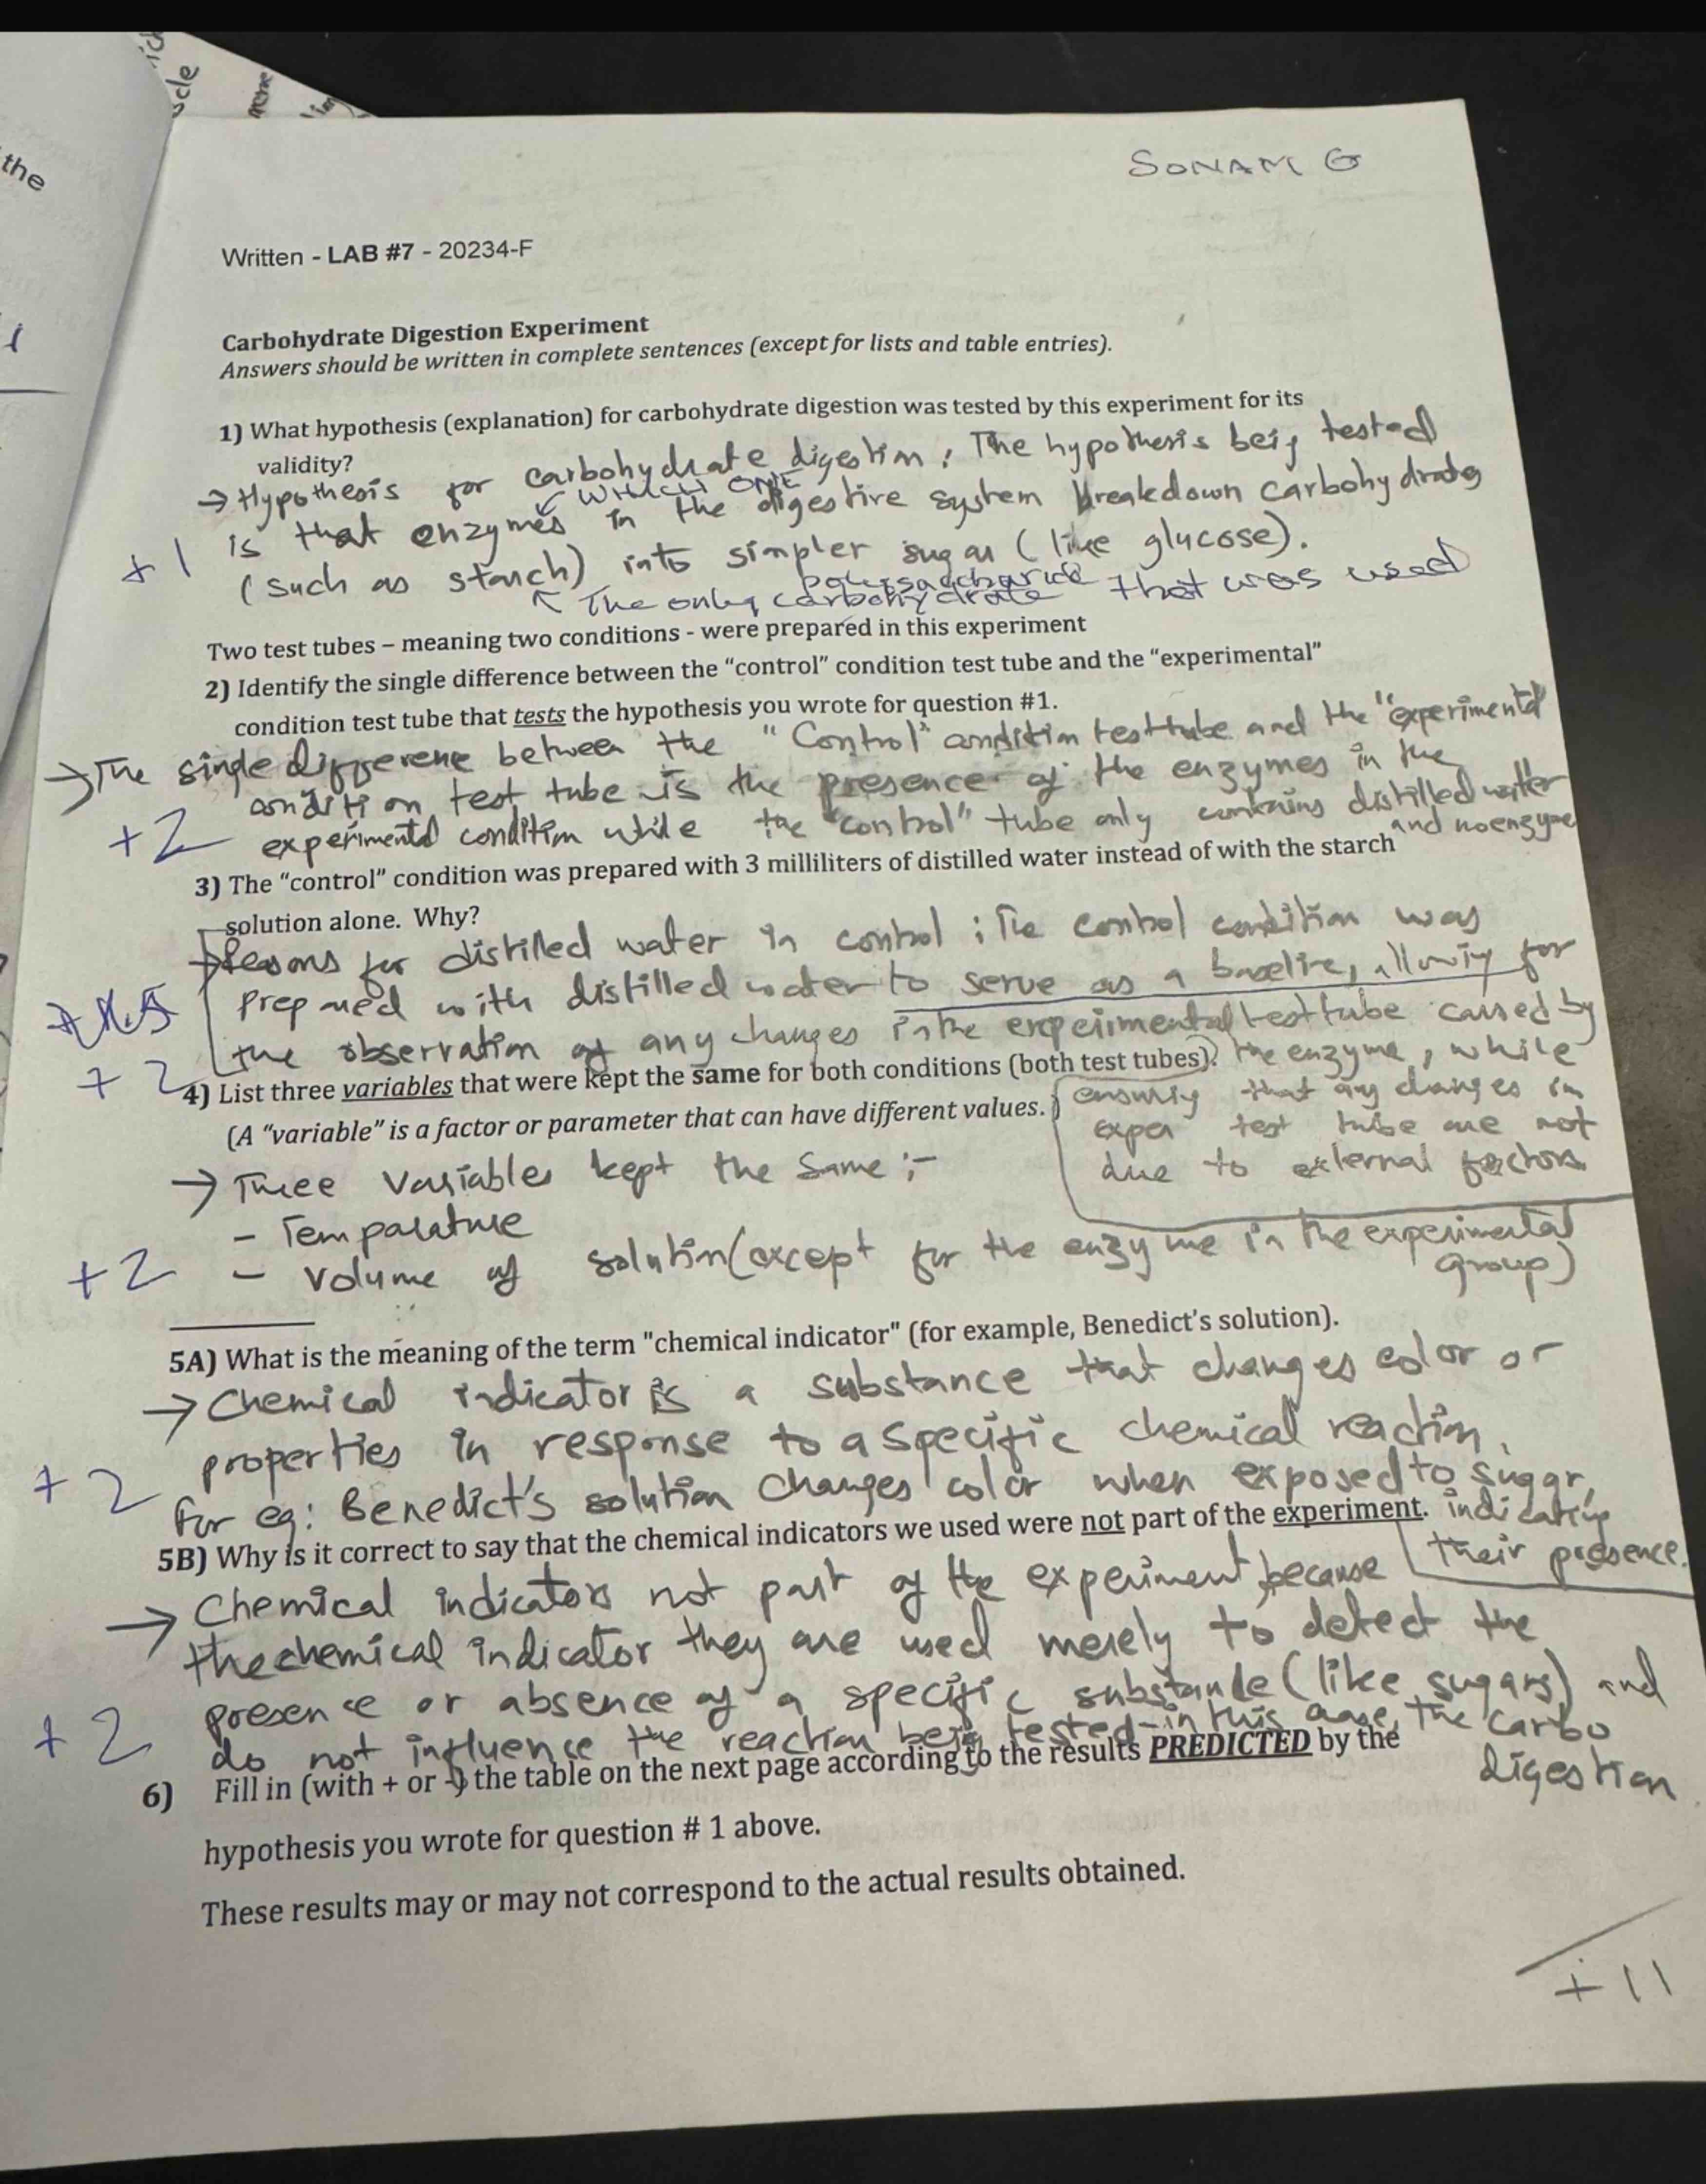 the
SONAM G
Written - LAB #7 - 20234-F
Carbohydrate Digestion Experiment
Answers should be written in complete sentences (except for lists and table entries).
1) What hypothesis (explanation) for carbohydrate digestion was tested by this experiment for its
validity?
→ Hypothesis for carbohydrate digestion: The hypothesis being tested
↙ WHICH ONE
is that enzymes in the digestive system breakdown carbohydrates
+1
(such as starch) into simpler sugar (like glucose).
polysaccharide
↖ The only carbohydrate that was used
Two test tubes – meaning two conditions - were prepared in this experiment
2) Identify the single difference between the “control” condition test tube and the “experimental”
condition test tube that tests the hypothesis you wrote for question #1.
→ The single difference between the "Control" condition test tube and the "experimental
condition test tube is the presence of the enzymes in the
+2
experimental condition while the "control" tube only contains distilled water
and no enzyme
3) The “control” condition was prepared with 3 milliliters of distilled water instead of with the starch
solution alone. Why?
→ Reasons for distilled water in control ; The control condition was
prepared with distilled water to serve as a baseline, allowing for
the observation of any changes in the experimental test tube caused by
+2
the enzyme, while
ensuring that any changes in
exper test tube are not
due to external factors
4) List three variables that were kept the same for both conditions (both test tubes).
(A “variable” is a factor or parameter that can have different values.)
→ Three Variables kept the Same :-
- Temparature
+2
- Volume of solution (except for the enzyme in the experimental
group)
5A) What is the meaning of the term "chemical indicator" (for example, Benedict’s solution).
→ Chemical indicator is a substance that changes color or
properties in response to a specific chemical reaction.
+2
For eg: Benedict's solution changes color when exposed to suggr,
indicating
their presence.
5B) Why is it correct to say that the chemical indicators we used were not part of the experiment.
→ Chemical indicators not part of the experiment because
the chemical indicator they are used merely to detect the
presence or absence of a specific substance (like sugars) and
+2
do not influence the reaction being tested - in this case, the carbo
digestion
6) Fill in (with + or -) the table on the next page according to the results PREDICTED by the
hypothesis you wrote for question # 1 above.
These results may or may not correspond to the actual results obtained.
+11